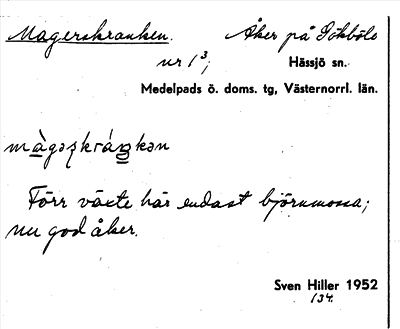 Magerskranken. Åker på Gökböle
nr 1³; Hässjö sn.
Medelpads ö. doms. tg, Västernorrl. län.
màgəʂkráŋkən
Förr växte här endast björnmossa;
nu god åker.
Sven Hiller 1952
134.